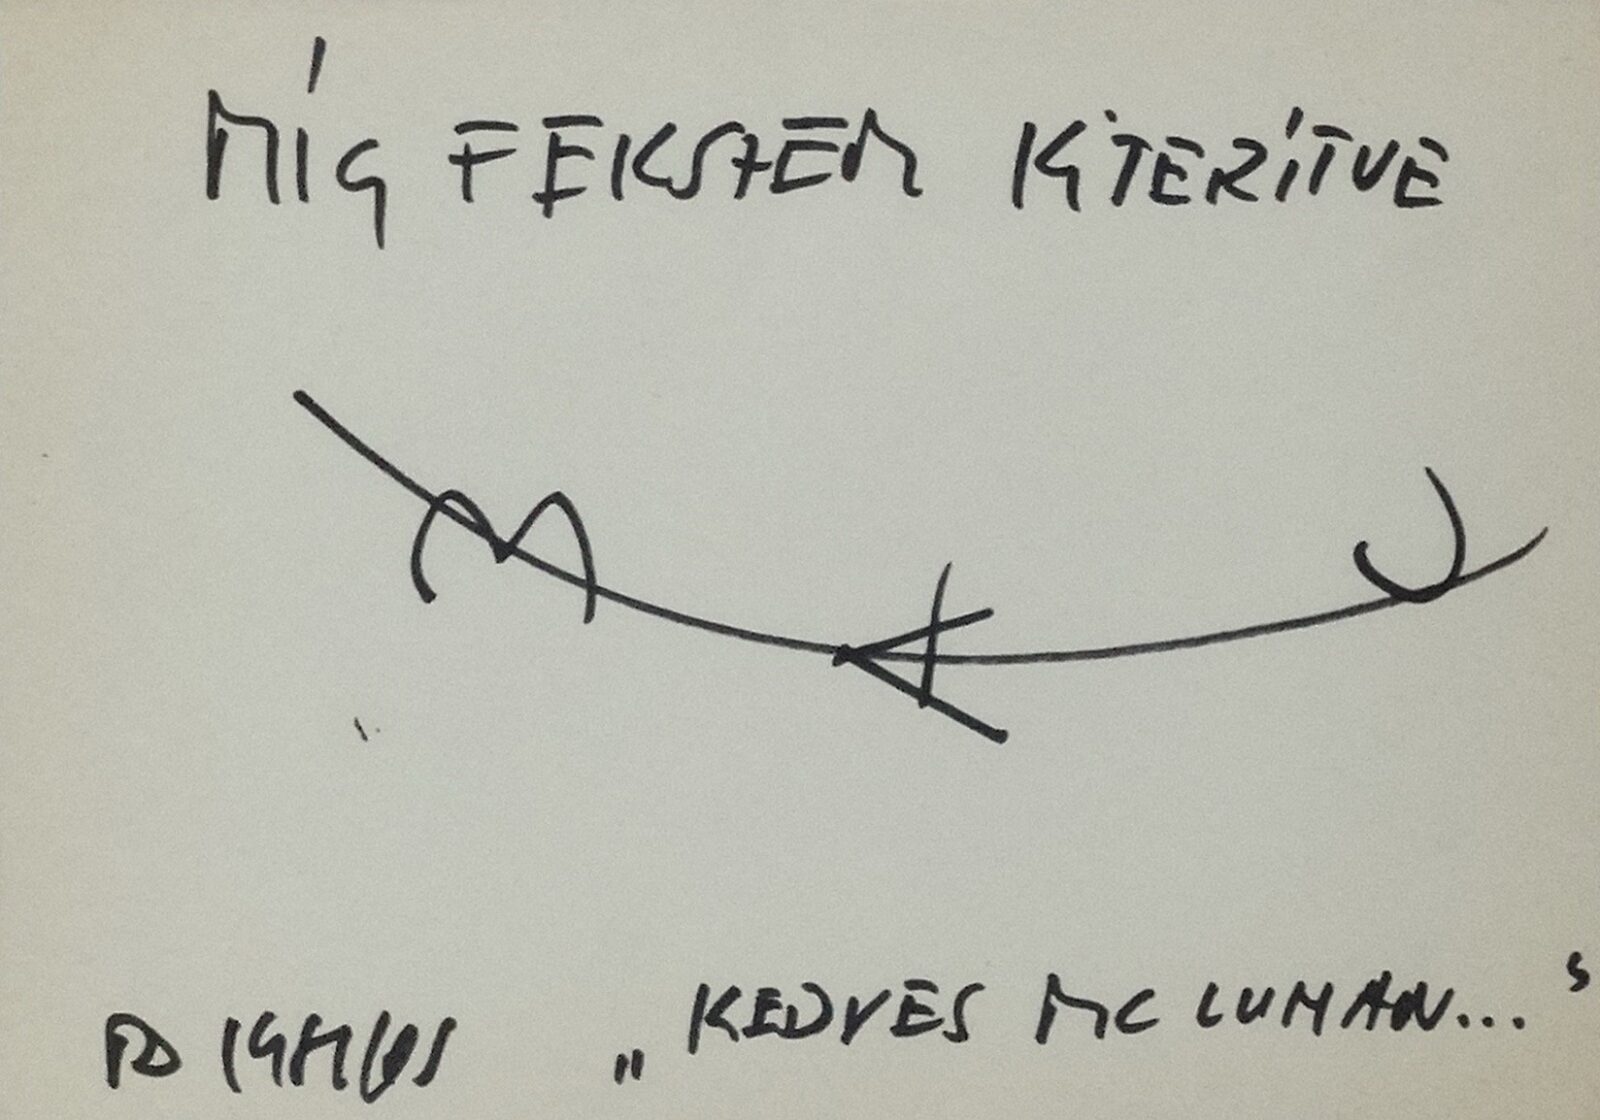 MÍG FEKSZEM KITERÍTVE
M A U
„KEDVES MC LUHAN..."